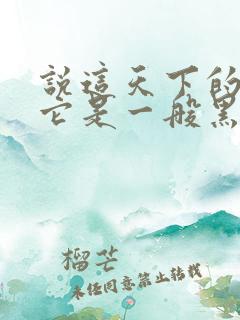 說這天下的
它是一般黑
榴芒
未经同意禁止转载